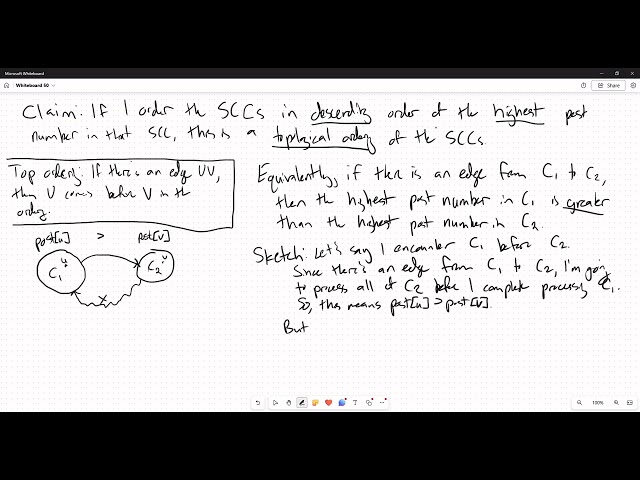 Microsoft Whiteboard
Whiteboard 50
Share
Claim: If I order the SCCs in descending order of the highest post
number in that SCC, this is a topological ordering of the SCCs.
Top ordering: If there is an edge UV,
then U comes before V in the
ordering.
post[u] > post[v]
C1 u C2 v
X
Equivalently, if there is an edge from C1 to C2,
then the highest post number in C1 is greater
than the highest post number in C2.
Sketch: Let's say I encounter C1 before C2.
Since there's an edge from C1 to C2, I'm going
to process all of C2 before I complete processing C1.
So, this means post[u] > post[v].
But
100%